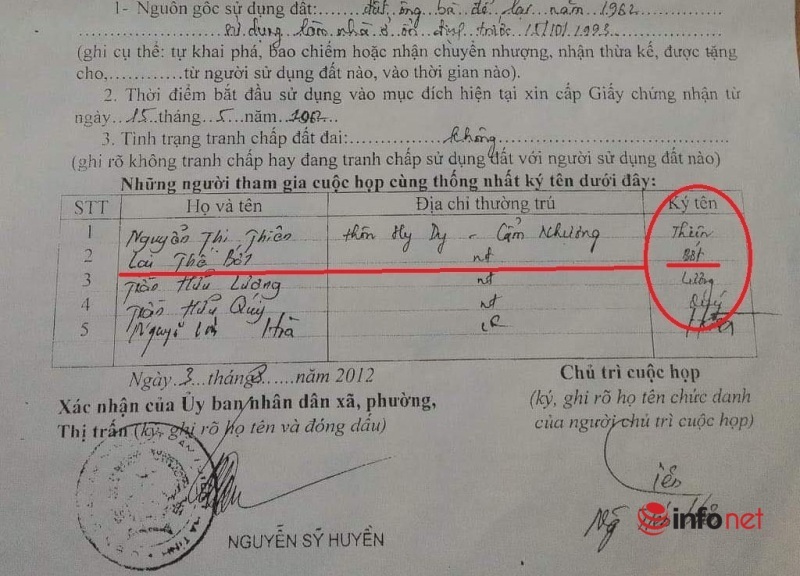 1- Nguồn gốc sử dụng đất:......đất ông bà để lại năm 1962
sử dụng làm nhà ở ổn định trước 15/10/1993
(ghi cụ thể: tự khai phá, bao chiếm hoặc nhận chuyển nhượng, nhận thừa kế, được tặng
cho,............từ người sử dụng đất nào, vào thời gian nào).
2. Thời điểm bắt đầu sử dụng vào mục đích hiện tại xin cấp Giấy chứng nhận từ
ngày...15...tháng...5...năm...1962...
3. Tình trạng tranh chấp đất đai:............không............
(ghi rõ không tranh chấp hay đang tranh chấp sử dụng đất với người sử dụng đất nào)
Những người tham gia cuộc họp cùng thống nhất ký tên dưới đây:
STT Họ và tên Địa chỉ thường trú Ký tên
1 Nguyễn Thị Thiên thôn Hy Dy - Cẩm Nhượng Thiên
2 Lai Thế Bót nt Bót
3 Trần Hữu Lương nt Lương
4 Trần Hữu Quý nt Quý
5 Hà
Ngày 3...tháng 8......năm 2012
Xác nhận của Ủy ban nhân dân xã, phường,
Thị trấn (ký, ghi rõ họ tên và đóng dấu)
Chủ trì cuộc họp
(ký, ghi rõ họ tên chức danh
của người chủ trì cuộc họp)
NGUYỄN SỸ HUYỀN
infonet